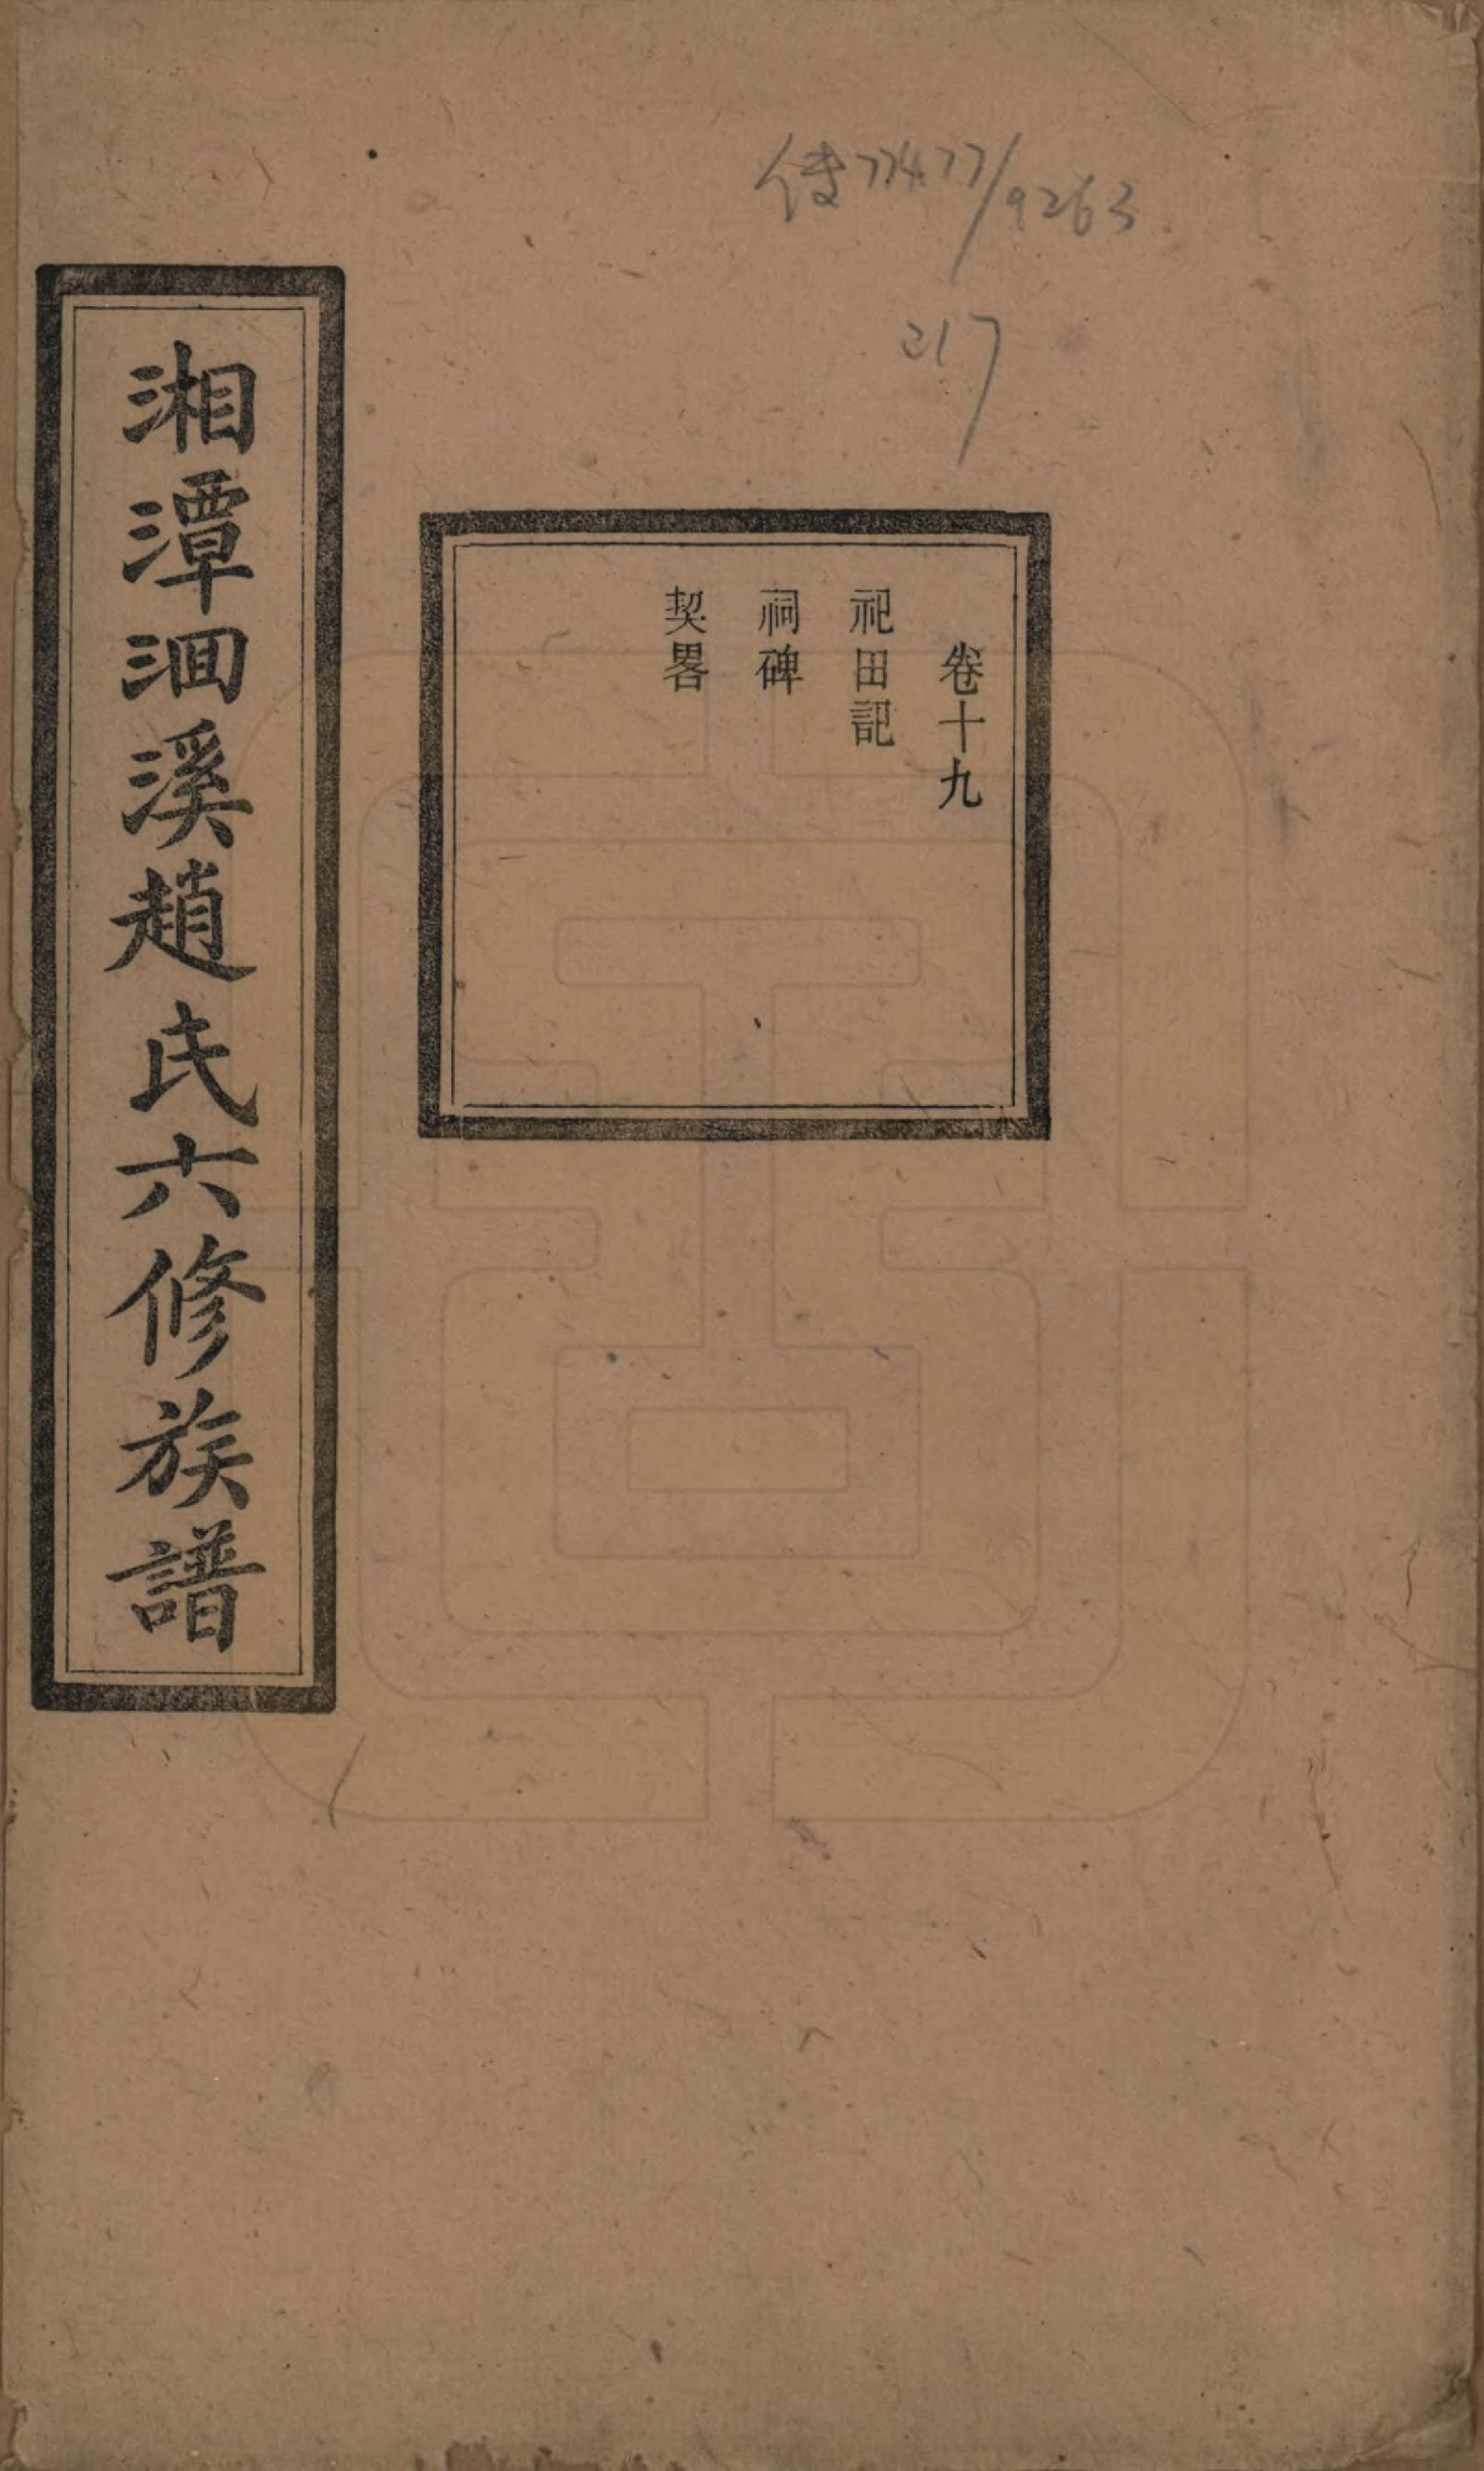 傳777477/9263
217
卷十九
祀田記
祠碑
契畧
湘潭洄溪趙氏六修族譜